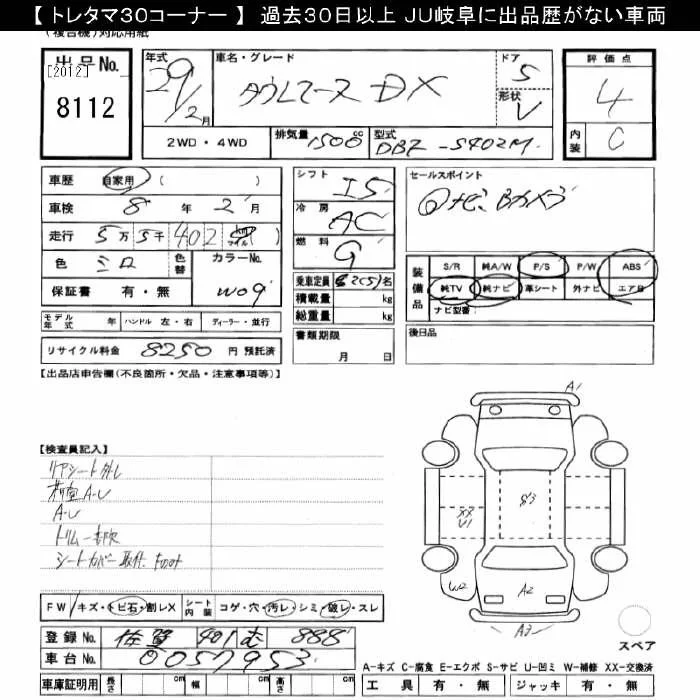 【トレタマ30コーナー】 過去30日以上 JU岐阜に出品歴がない車両
(複合機)対応用紙
出品No. [2012] 8112
年式 29年/2月
車名・グレード タウンエース DX
ドア 5
形状 V
評価点 4
内装 C
2WD・4WD
排気量 1500cc
型式 DBF-S402M
車歴 自家用 ( )
車検 8年 2月
走行 5万 5千 402 km マイル
色 シロ 色替 カラーNo. W09
保証書 有・無
モデル年式 年 ハンドル 左・右 ディーラー・並行
リサイクル料金 8250 円 預託済
シフト I5
冷房 AC
燃料 G
乗車定員 2(5)名
積載量 kg
総重量 kg
書類期限
月 日
セールスポイント
ナビ、Bカメラ
装備品 S/R 純A/W P/S P/W ABS
純TV 純ナビ 革シート 外ナビ エアB
ナビ型番:
後日品
【出品店申告欄(不良箇所・欠品・注意事項等)】
【検査員記入】
リアシート外し
荷室A・U
A・U
トリム一部欠
シートカバー取付
FW キズ・トビ石・割レX シート内装 コゲ・穴・汚レ・シミ・破レ・スレ
登録No. 佐賀 401 む 888
車台No. 0057953
車庫証明用 長さ cm 幅 cm 高さ cm
A1
XX
U1
W2
A2
A3
スペア
A-キズ C-腐食 E-エクボ S-サビ U-凹ミ W-補修 XX-交換済
工具 有・無 ジャッキ 有・無